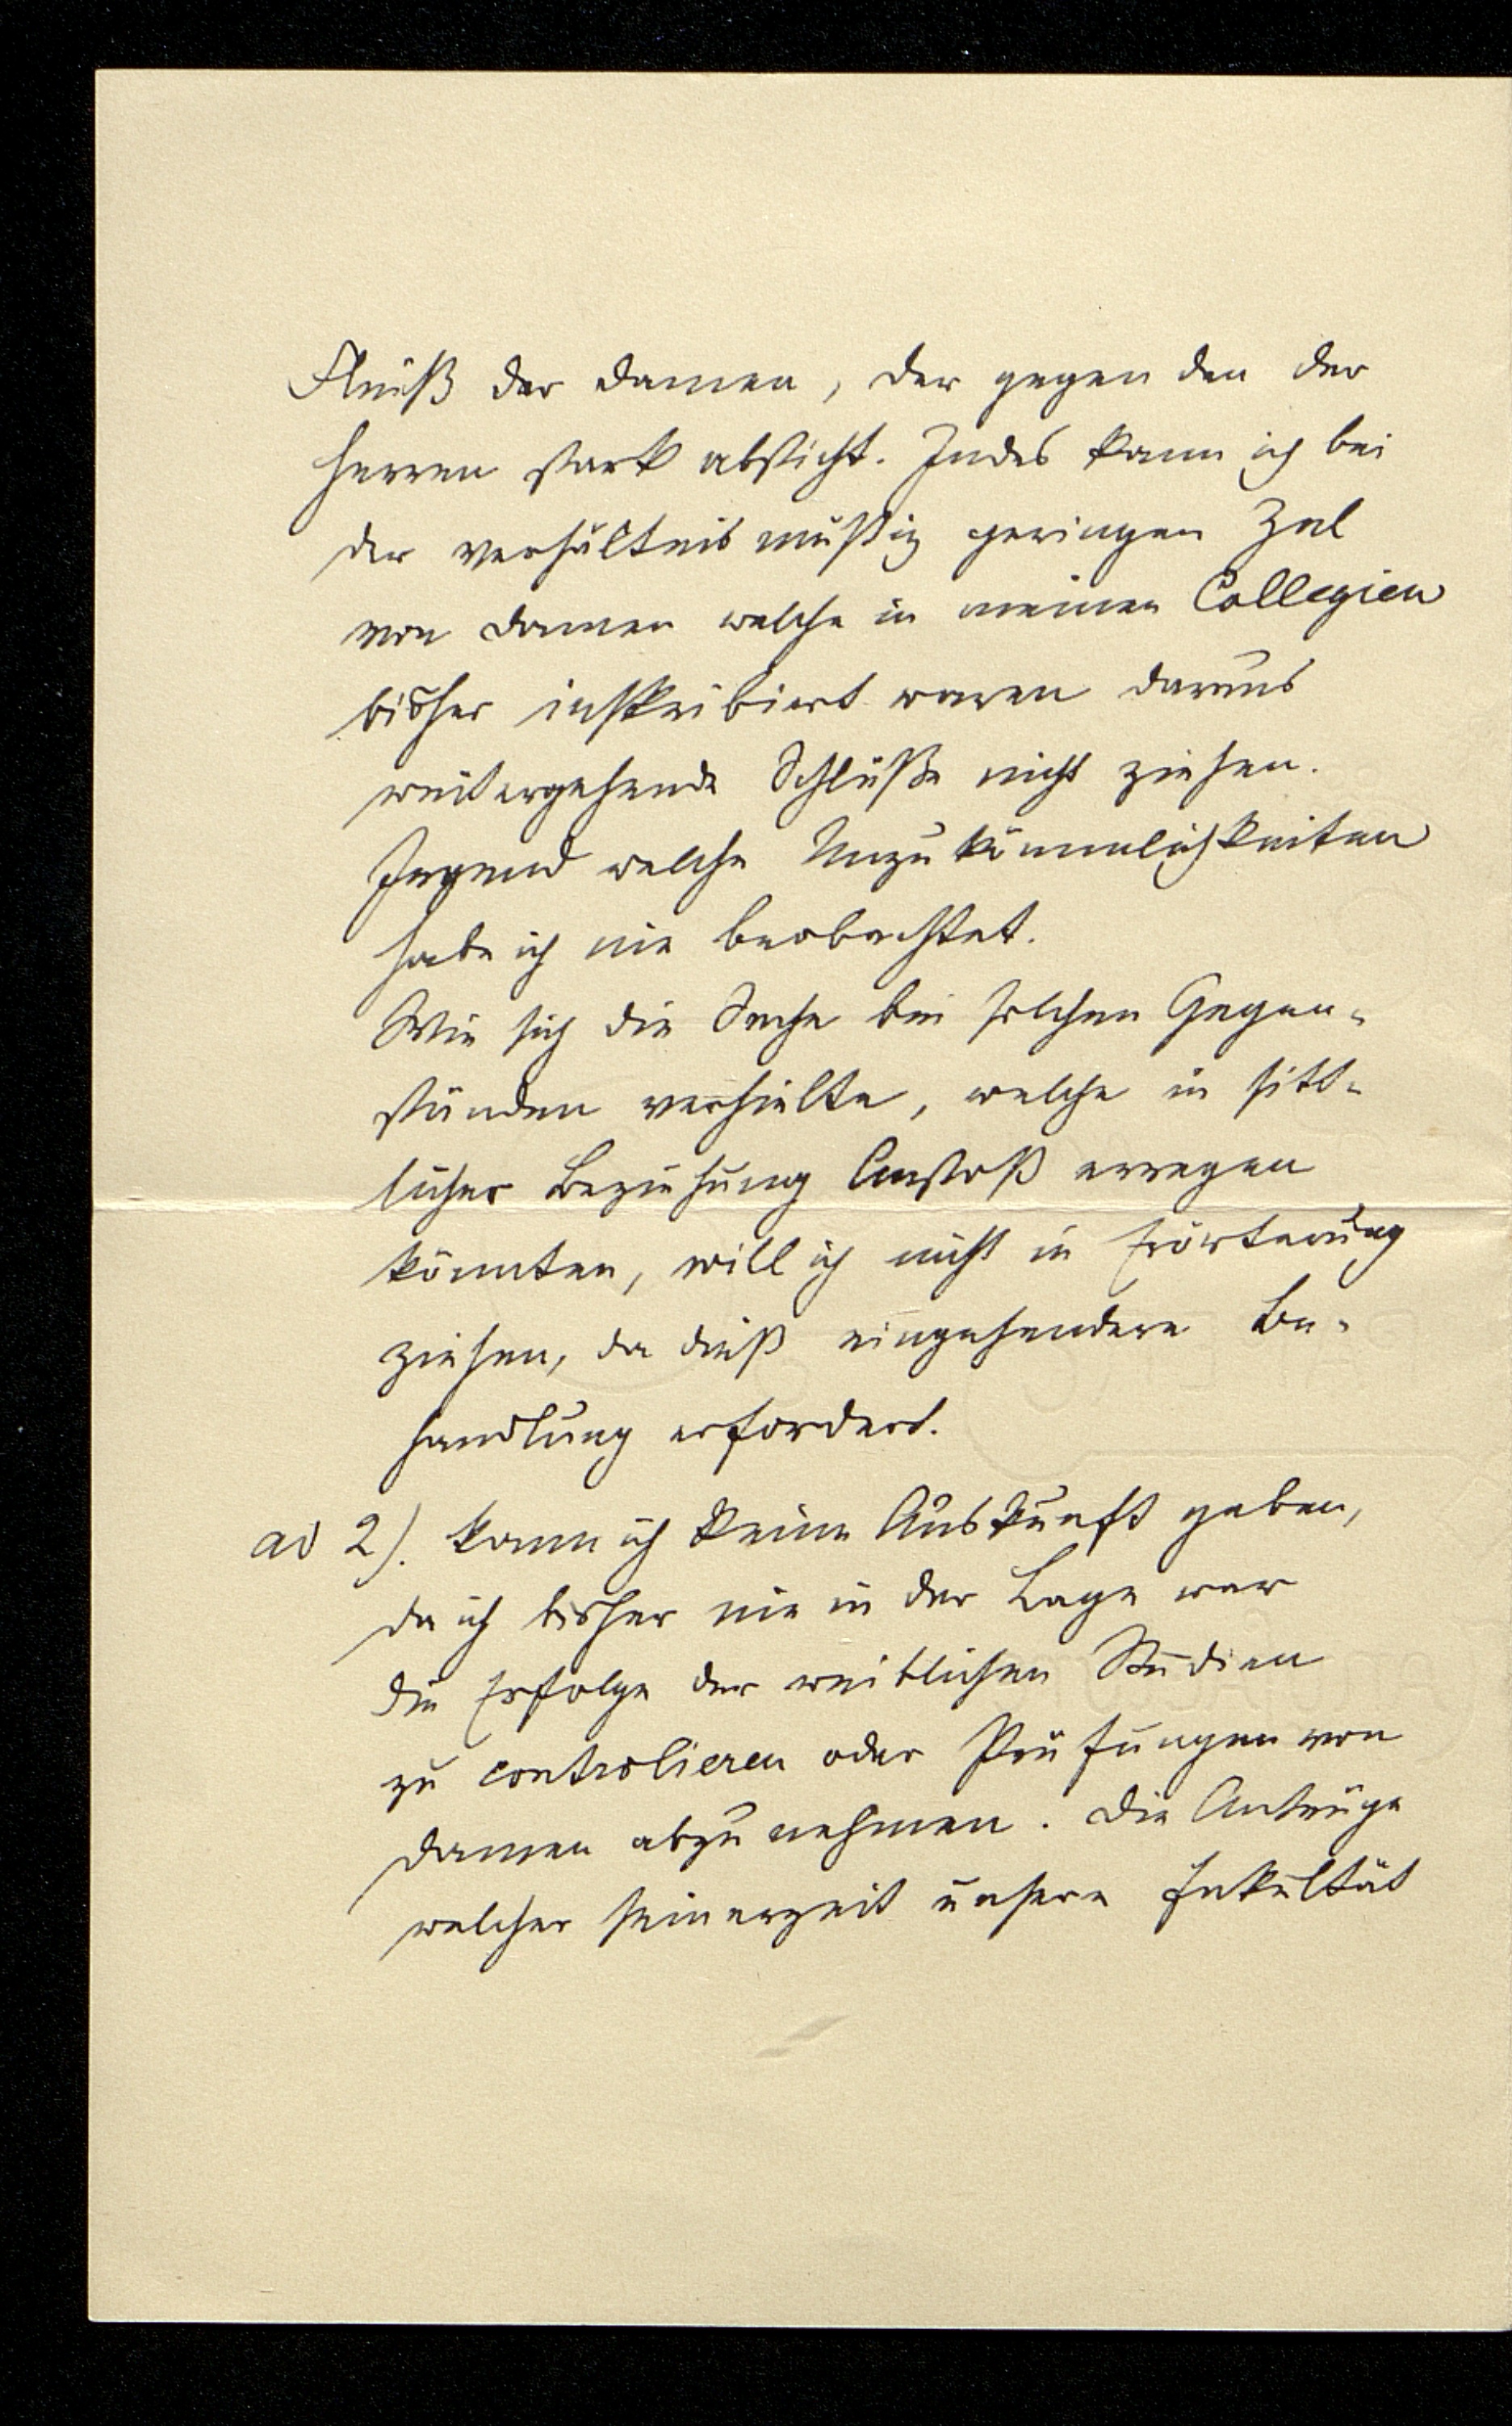 Fleiß der Damen, der gegen den der
Herren stark absticht. Indes kann ich bei
der verhältnismäßig geringen Zal
von Damen welche in meinen Collegien
bisher inskribiert waren daraus
weitergehende Schlüße nicht ziehen.
Irgend welche Unzukömmlichkeiten
habe ich nie beobachtet.
Wie sich die Sache bei solchen Gegen-
ständen verhielte, welche in sitt-
licher Beziehung Anstoß erregen
könnten, will ich nicht in Erörterung
ziehen, da dieß eingehendere Be-
handlung erfordert.
ad 2). kann ich keine Auskunft geben,
da ich bisher nie in der Lage war
die Erfolge der weiblichen Studien
zu controlieren oder Prüfungen von
Damen abzunehmen. Die Anträge
welcher seinerzeit unsere Fakultät